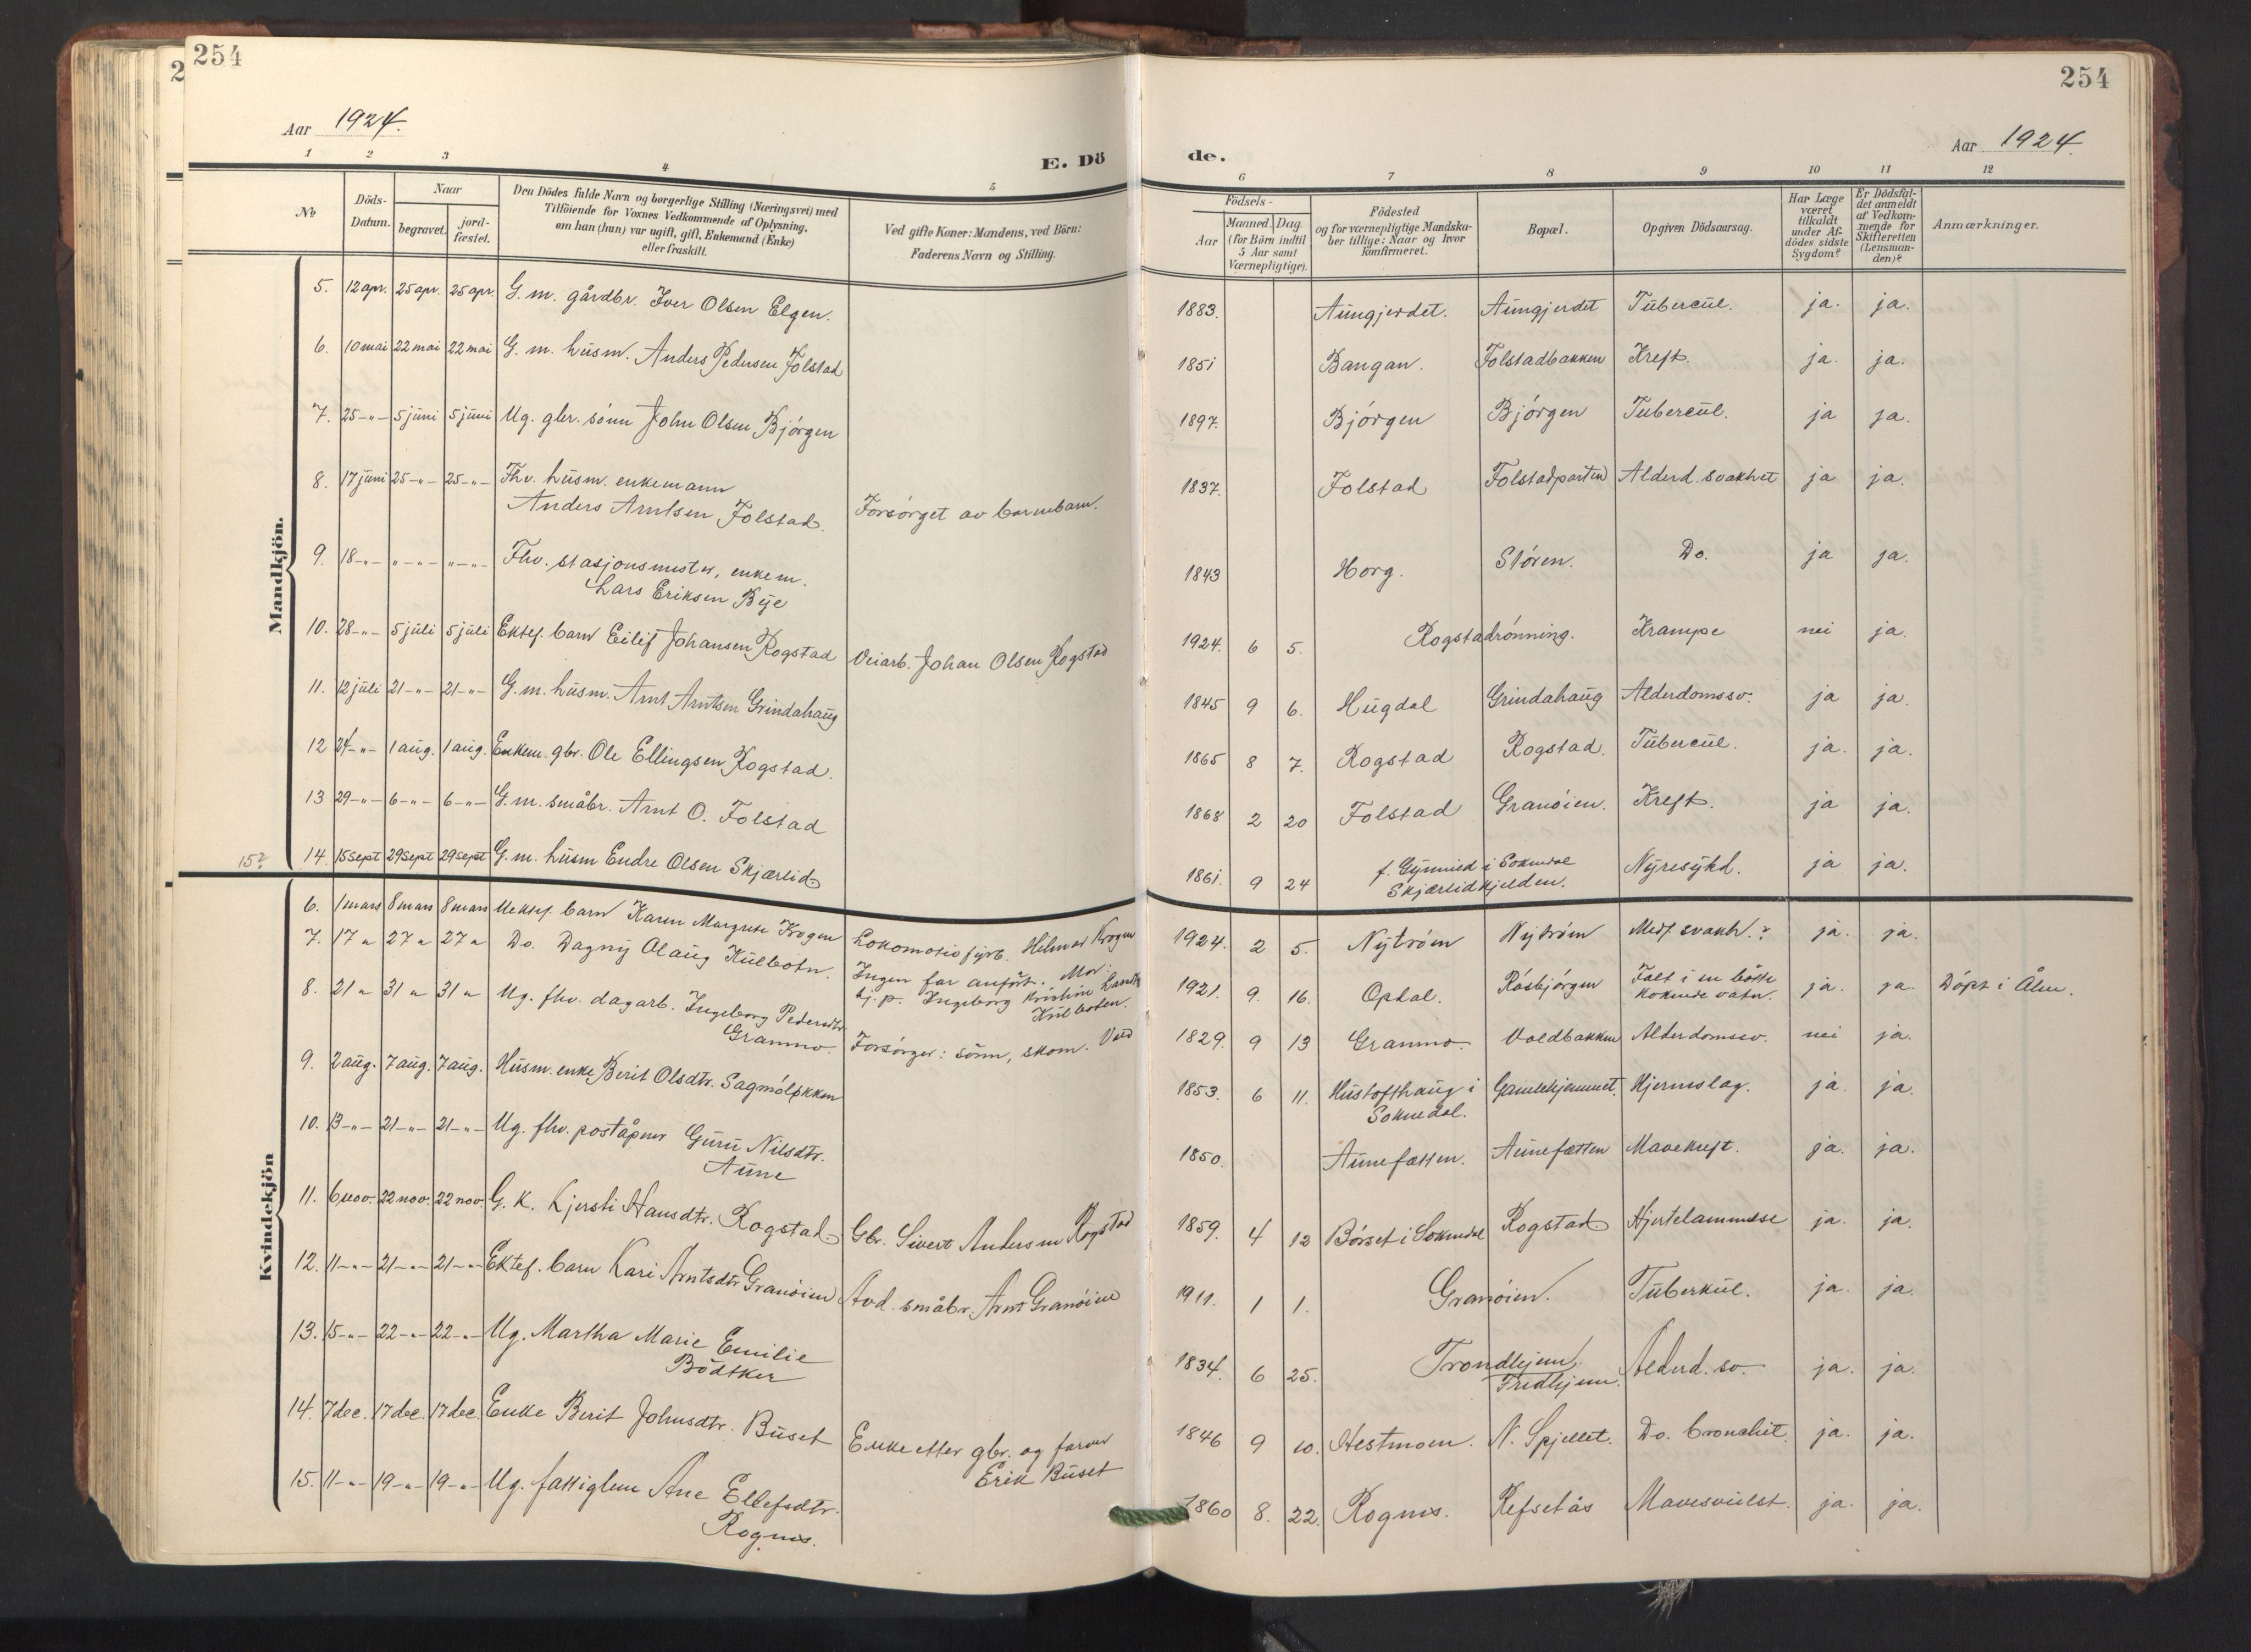 254
2
254
Aar 1924.
Aar 1924.
E. Dö
de.
1 2 3 4 5
6 7 8 9 10 11 12
No
Döds-
Datum.
Naar
begravet.
jord-
fæstet.
Den Dödes fulde Navn og borgerlige Stilling (Næringsvei) med
Tilföiende for Voxnes Vedkommende af Oplysning,
om han (hun) var ugift, gift, Enkemand (Enke)
eller fraskilt.
Ved gifte Koner: Mandens, ved Börn:
Faderens Navn og Stilling.
Födsels-
Aar
Maaned. Dag.
(for Börn indtil
5 Aar samt
Værnepligtige).
Födested
og for værnepligtige Mandska-
ber tillige: Naar og hvor
konfirmeret.
Bopæl.
Opgiven Dödsaarsag.
Har Læge
været
tilkaldt
under Af-
dödes sidste
Sygdom?
Er Dödsfal-
det anmeldt
af Vedkom-
mende for
Skifteretten
(Lensman-
den)?
Anmærkninger.
Mandkjön.
5. 12 apr. 25 apr. 25 apr. G. m. gårdbr. Iver Olsen Elgen. 1883. Aungjerdet. Aungjerdet Tubercul. ja. ja.
6. 10 mai 22 mai 22 mai G. m. husm. Anders Pedersen Folstad 1851 Bangan. Folstadbakken Kreft. ja. ja.
7. 25-"- 5 juni 5 juni Ug. gbr. sönn John Olsen Bjórgen 1897. Bjórgen Bjórgen Tubercul. ja ja.
8. 17 juni 25-"- 25-"- Fhv. husm. enkemann
Anders Arntsen Folstad. Forsörget av barnebarn. 1837. Folstad Folstadparten Alderd. svakhet ja ja.
9. 18-"- "-"- "-"- Fhv. stasjonsmester, enkem.
Lars Eriksen Bye 1843 Horg. Stören. Do. ja ja.
10. 28-"- 5 juli 5 juli Ektef. barn Eilif Johansen Rogstad Veiarb. Johan Olsen Rogstad 1924. 6 5. Rogstadrönning. Krampe nei ja.
11. 12 juli 21-"- 21-"- G. m. husm. Arnt Arntsen Grindahaug 1845 9 6. Hugdal Grindahaug Alderdomssv. ja ja.
12 24-"- 1 aug. 1 aug. Enkem. gbr. Ole Ellingsen Rogstad. 1865 8 7. Rogstad Rogstad. Tubercul. ja. ja.
13 29-"- 6-"- 6-"- G. m. småbr. Arnt O. Folstad 1868 2 20 Folstad Granöien. Kreft. ja ja.
15? 14. 15 sept 29 sept 29 sept G. m. husm Endre Olsen Skjærlid. 1861. 9 24 f. i Soknedal
Skjærlidkjelden. Nyresykd. ja ja.
Kvindekjön
6. 1 mars 8 mars 8 mars Uektef. barn Karen Margrete Krogen Lokomotivfyrb. Helmer Krogen 1924. 2 5. Nytröm Nytröm Medf. svakh.? ja. ja.
7. 17 " 27 " 27 " Do. Dagny Olaug Kulbotn. Ingen far anfört. Mor:
tj. p. Ingeborg Kristine
Kulboten. 1921. 9. 16. Opdal. Rósbjórgen Falt i en bötte
kokende vatn. ja. ja. Döpt i Ålen.
8. 21 " 31 " 31 " Ug. fhv. dagarb. Ingeborg Pedersdtr
Granmo. Forsörger: sönn, skom. 1829. 9 13 Granmo. Voldbakken Alderdomssv. nei ja.
9. 2 aug. 7 aug. 7 aug. Husm. enke Berit Olsdtr. Sagmólökken 1853. 6 11. Hustofthaug i
Soknedal. Gamlehjemmet. Hjerneslag. ja. ja.
10. 13-"- 21-"- 21-"- Ug. fhv. poståpner Guru Nilsdtr.
Aune 1850. Aunefætten. Aunefætten Mavekreft. ja. ja.
11. 6 nov. 22 nov. 22 nov. G. K. Kjersti Hansdtr. Rogstad. Gbr. Sivert Andersen Rogstad 1859. 4 12 Börset i Soknedal Rogstad. Hjertelammelse ja. ja.
12. 11-"- 21-"- 21-"- Ektef. barn Kari Arntsdtr Granöien Avd. småbr. Arnt Granöien 1911. 1 1. Granöien. Tuberkul. ja. ja.
13. 15-"- 22-"- 22-"- Ug. Martha Marie Emilie
Bödtker 1834. 6 25. Trondhjem.
Fredhjem. Alderd. sv. ja. ja.
14. 7 dec. 17 dec. 17 dec. Enke Berit Johnsdtr. Buset Enke etter gbr. og farver
Erik Buset 1846 9 10. Hestmoen. N. Spjellet. Do. bronchit. ja. ja.
15. 11-"- 19-"- 19-"- Ug. fattiglem Ane Ellefsdtr.
Rognes. 1860 8. 22. Rognes. Refsetås Mavesvulst. ja. ja.